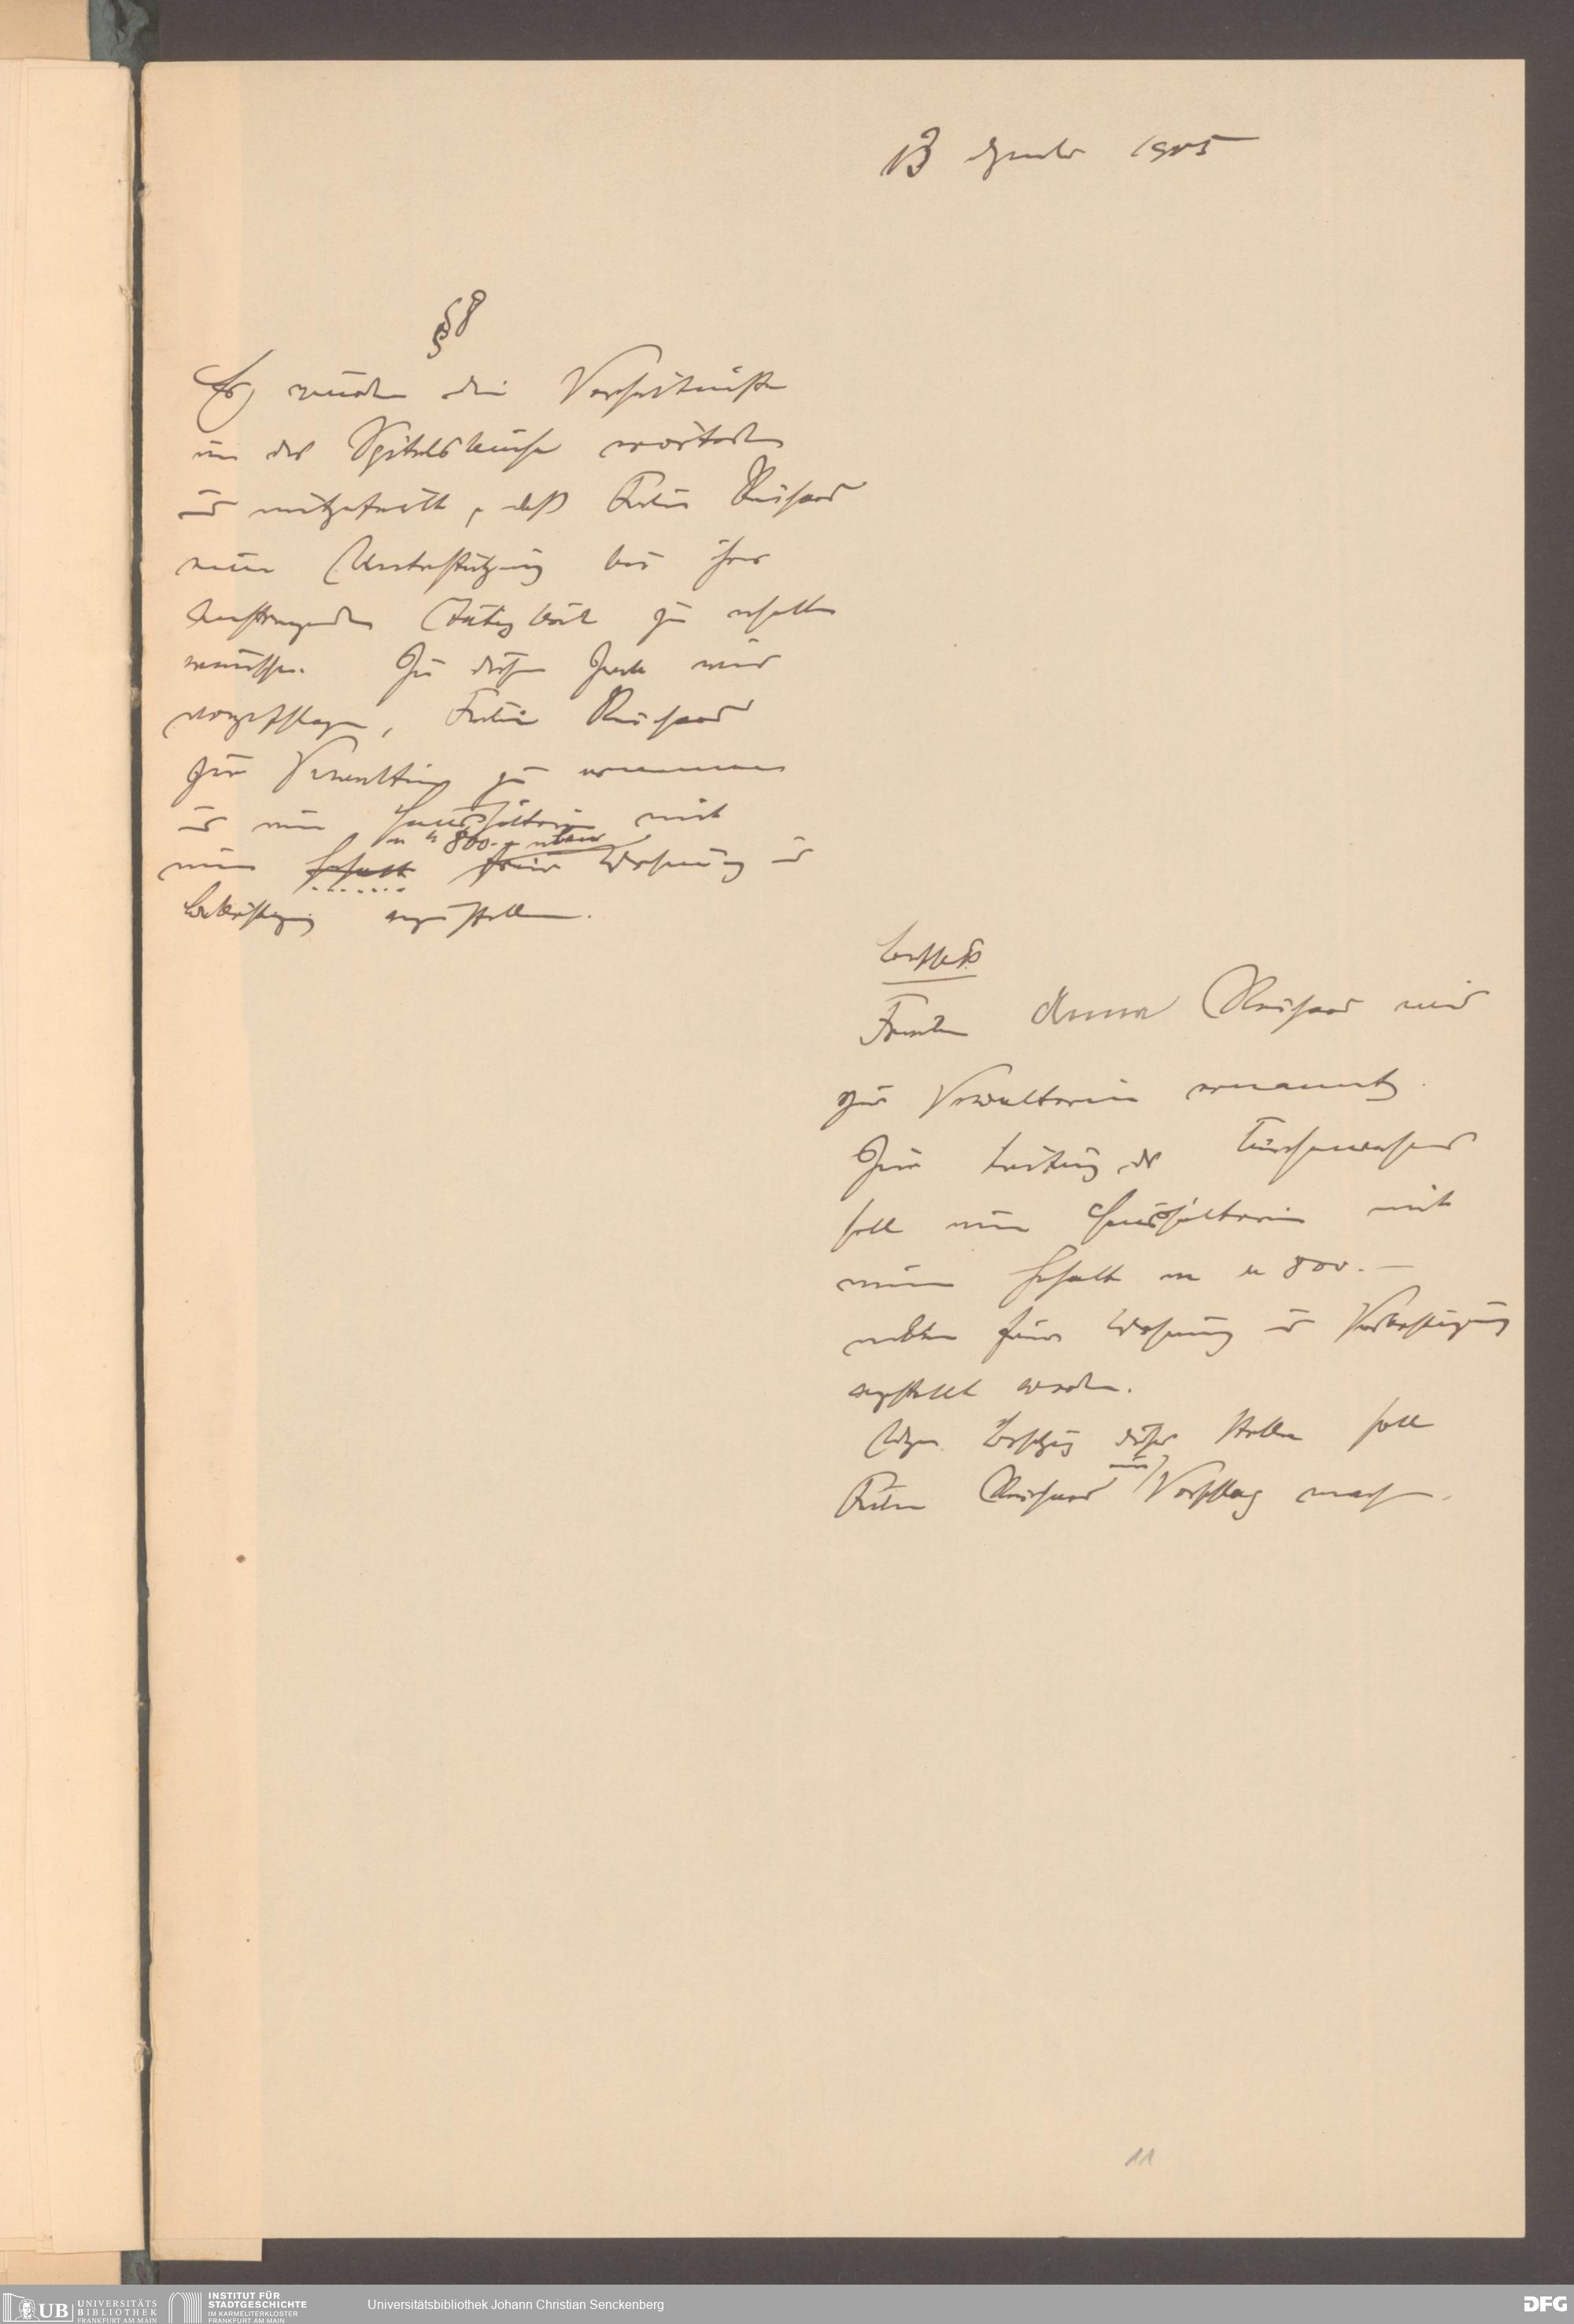 13 Dezember 1905
§8
Es wurden die Verhältnisse
in der Spitalsküche erörtert
und mitgeteilt, daß Fräulein Reichard
eine Unterstützung bei ihrer
anstrengenden Tätigkeit zu erhalten
wünsche. Zu diesem Zwecke wird
vorgeschlagen, Fräulein Reichard
zur Verwalterin zu ernennen
und eine Haushälterin mit
v M 800.- neben
einem Gehalt freier Wohnung und
Beköstigung anzustellen.
Beschluß
Fräulein Anna Reichard wird
zur Verwalterin ernannt.
Zur Leitung des Küchenwesens
soll eine Haushälterin mit
einem Gehalt von M 800.-
neben freier Wohnung und Verköstigung
angestellt werden.
Wegen Besetzung dieser Stelle soll
einen
Fräulein Reichard Vorschlag machen.
11
UB UNIVERSITÄTS BIBLIOTHEK FRANKFURT AM MAIN
INSTITUT FÜR STADTGESCHICHTE IM KARMELITERKLOSTER FRANKFURT AM MAIN
Universitätsbibliothek Johann Christian Senckenberg
DFG